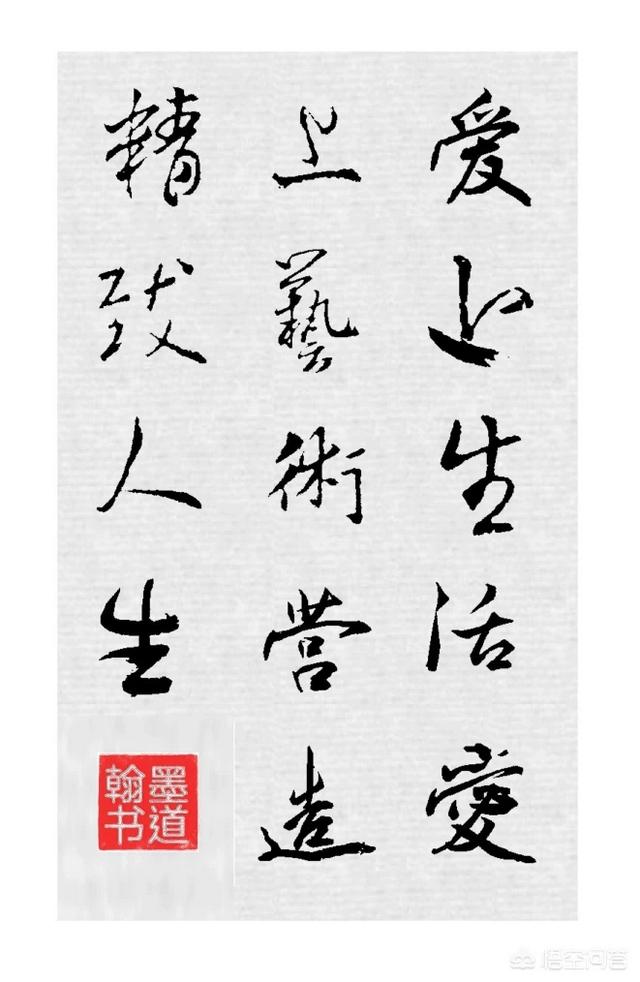 爱上生活愛
上藝術营造
精致人生
墨道
翰书
悟空问答